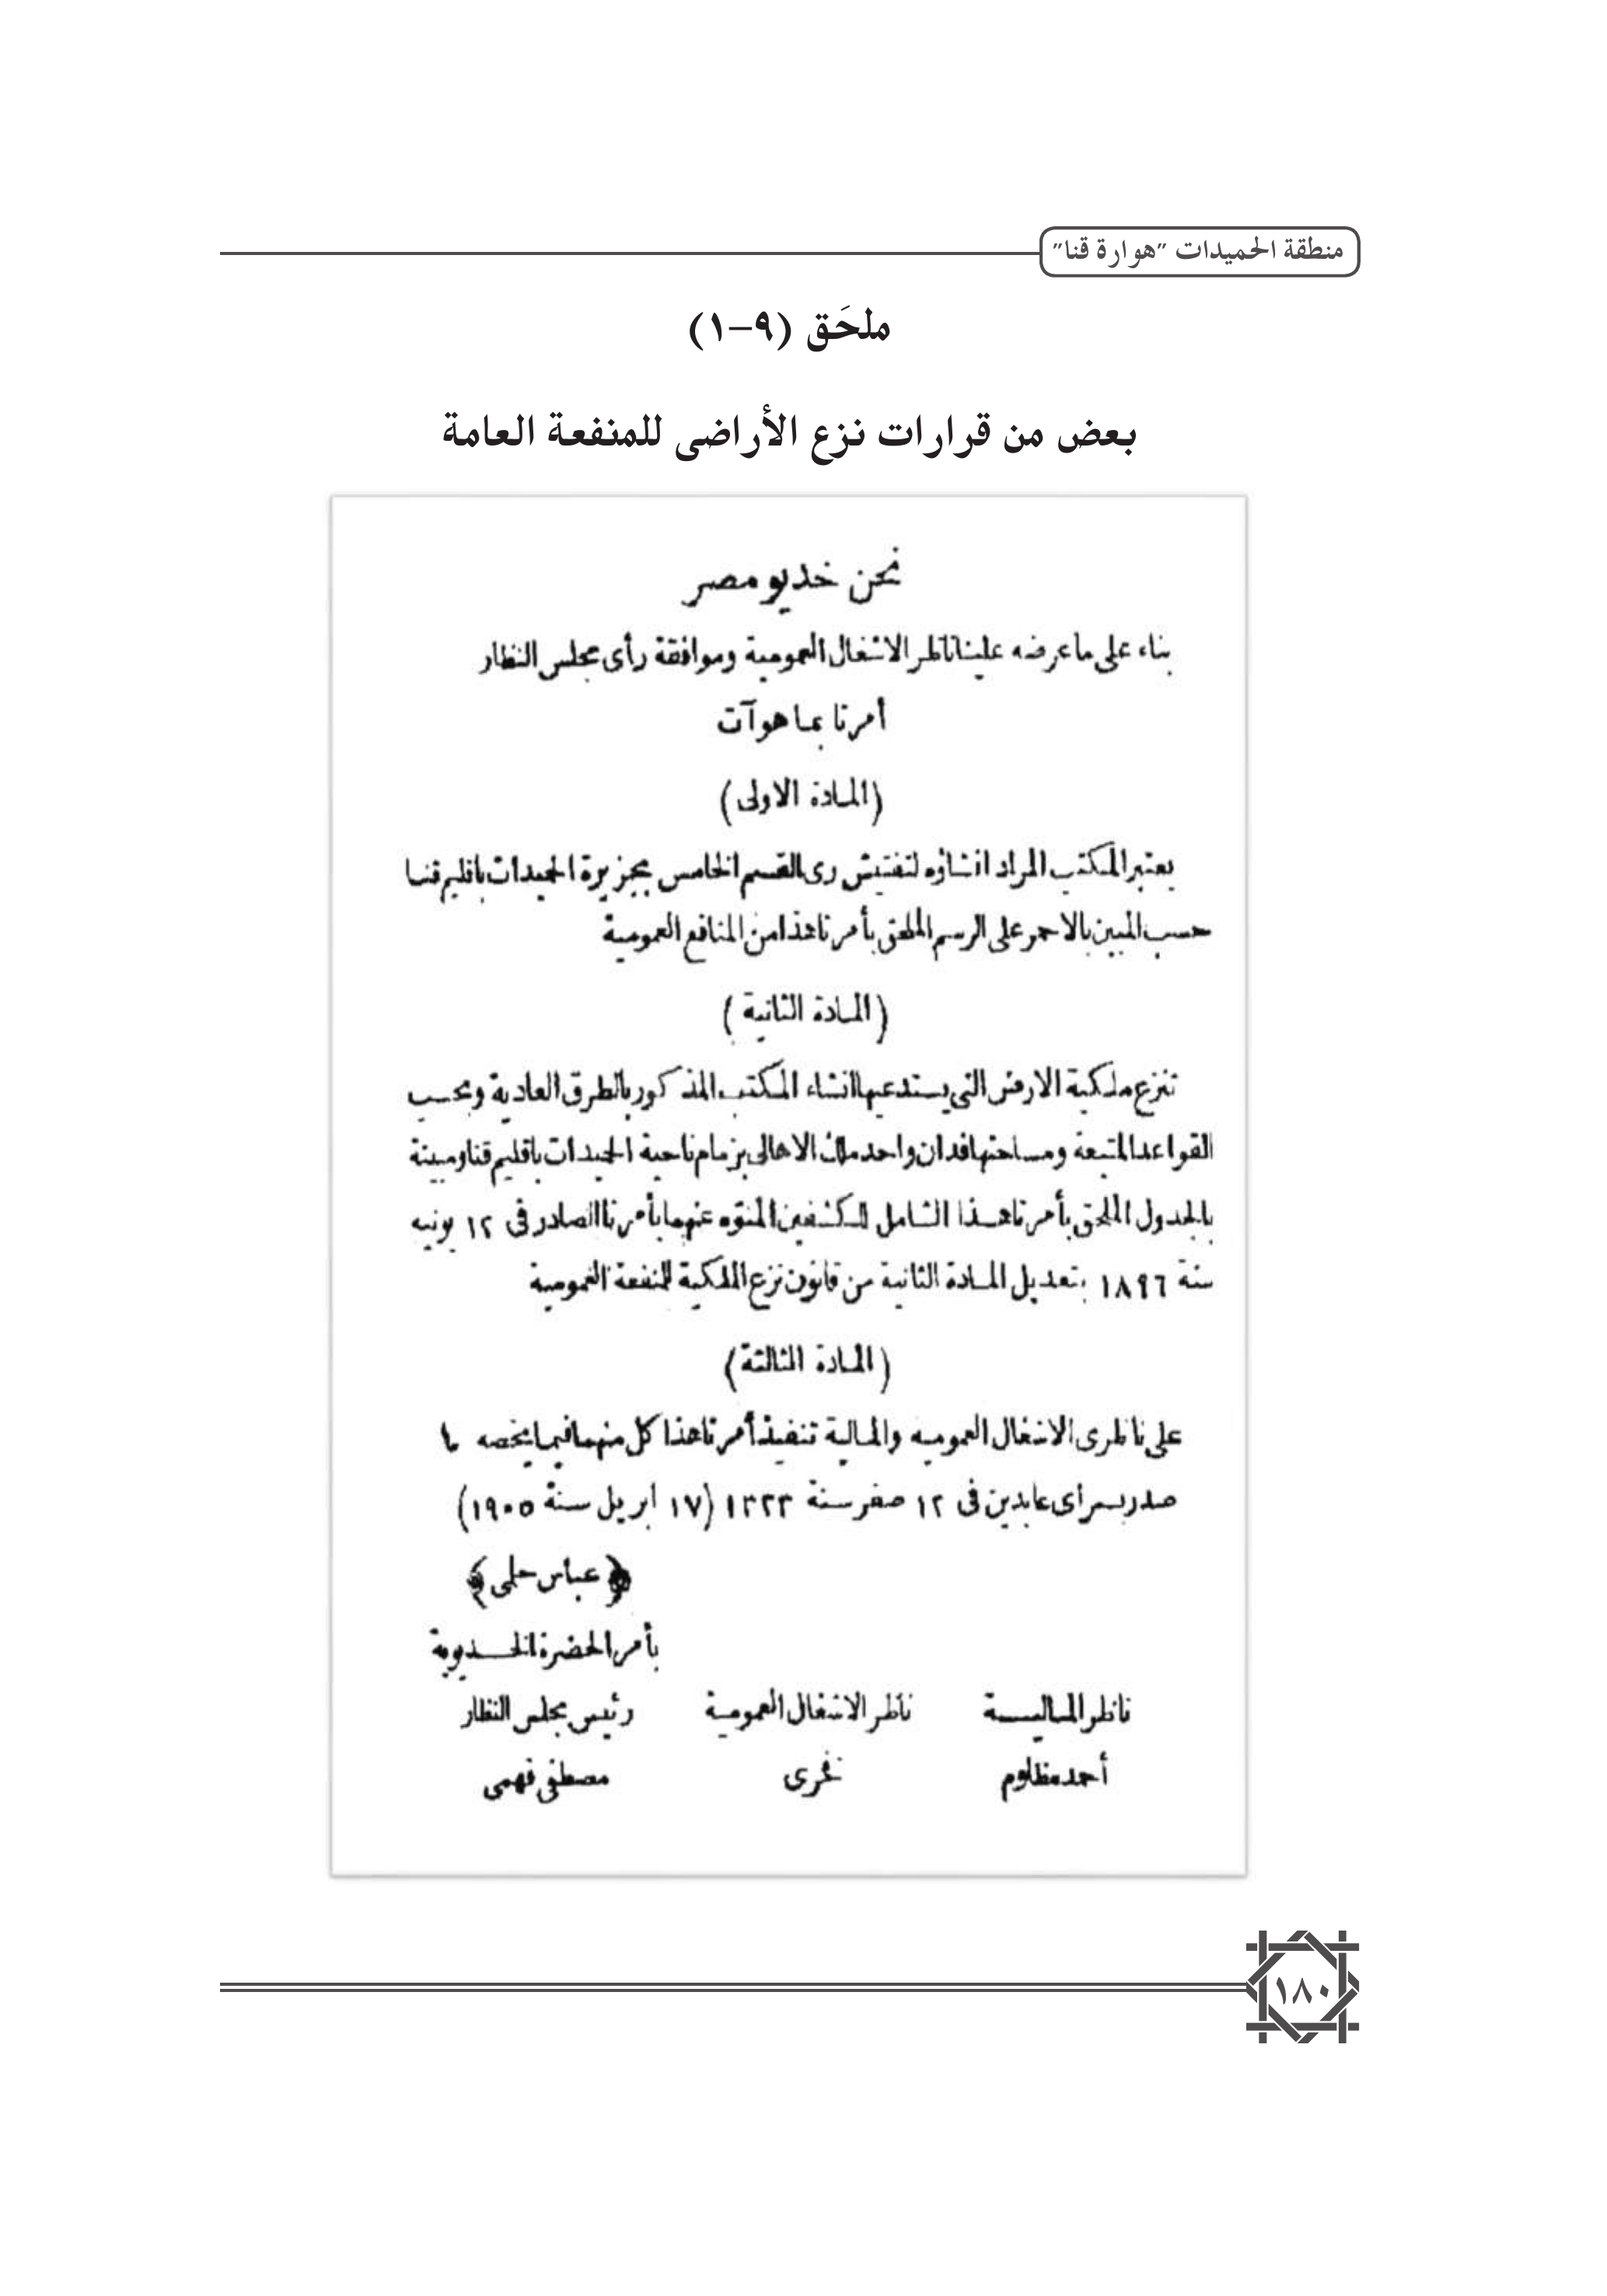 منطقة الحميدات "هوارة قنا"
ملحَق (٩-١)
بعض من قرارات نزع الأراضى للمنفعة العامة
نحن خديو مصر
بناء على ما عرضه علينا ناظر الاشغال العمومية وموافقة رأى مجلس النظار
أمرنا بما هو آت
(المادة الاولى)
يعتبر المكتب المراد انشاؤه لتفتيش رى القسم الخامس بجزيرة الحميدات باقليم قنا
حسب المبين بالاحمر على الرسم الملحق بأمرنا هذا من المنافع العمومية
(المادة الثانية)
تنزع ملكية الارض التى يستدعيها انشاء المكتب المذكور بالطرق العادية وبحسب
القواعد المتبعة ومساحتها فدان واحد ملك الاهالى بزمام ناحية الحميدات باقليم قنا ومبينة
بالجدول الملحق بأمرنا هذا الشامل للكشفين المنوّه عنهما بأمرنا الصادر فى ١٢ يونيه
سنة ١٨٩٦ بتعديل المادة الثانية من قانون نزع الملكية للمنفعة العمومية
(المادة الثالثة)
على ناظرى الاشغال العموميه والمالية تنفيذ أمرنا هذا كل منهما فيما يخصه
صدر بسراى عابدين فى ١٢ صفر سنة ١٣٢٣ (١٧ ابريل سنة ١٩٠٥)
﴿عباس حلمى﴾
بأمر الحضرة الخديوية
ناظر المالية ناظر الاشغال العمومية رئيس مجلس النظار
أحمد مظلوم فخرى مصطفى فهمى
١٨٠